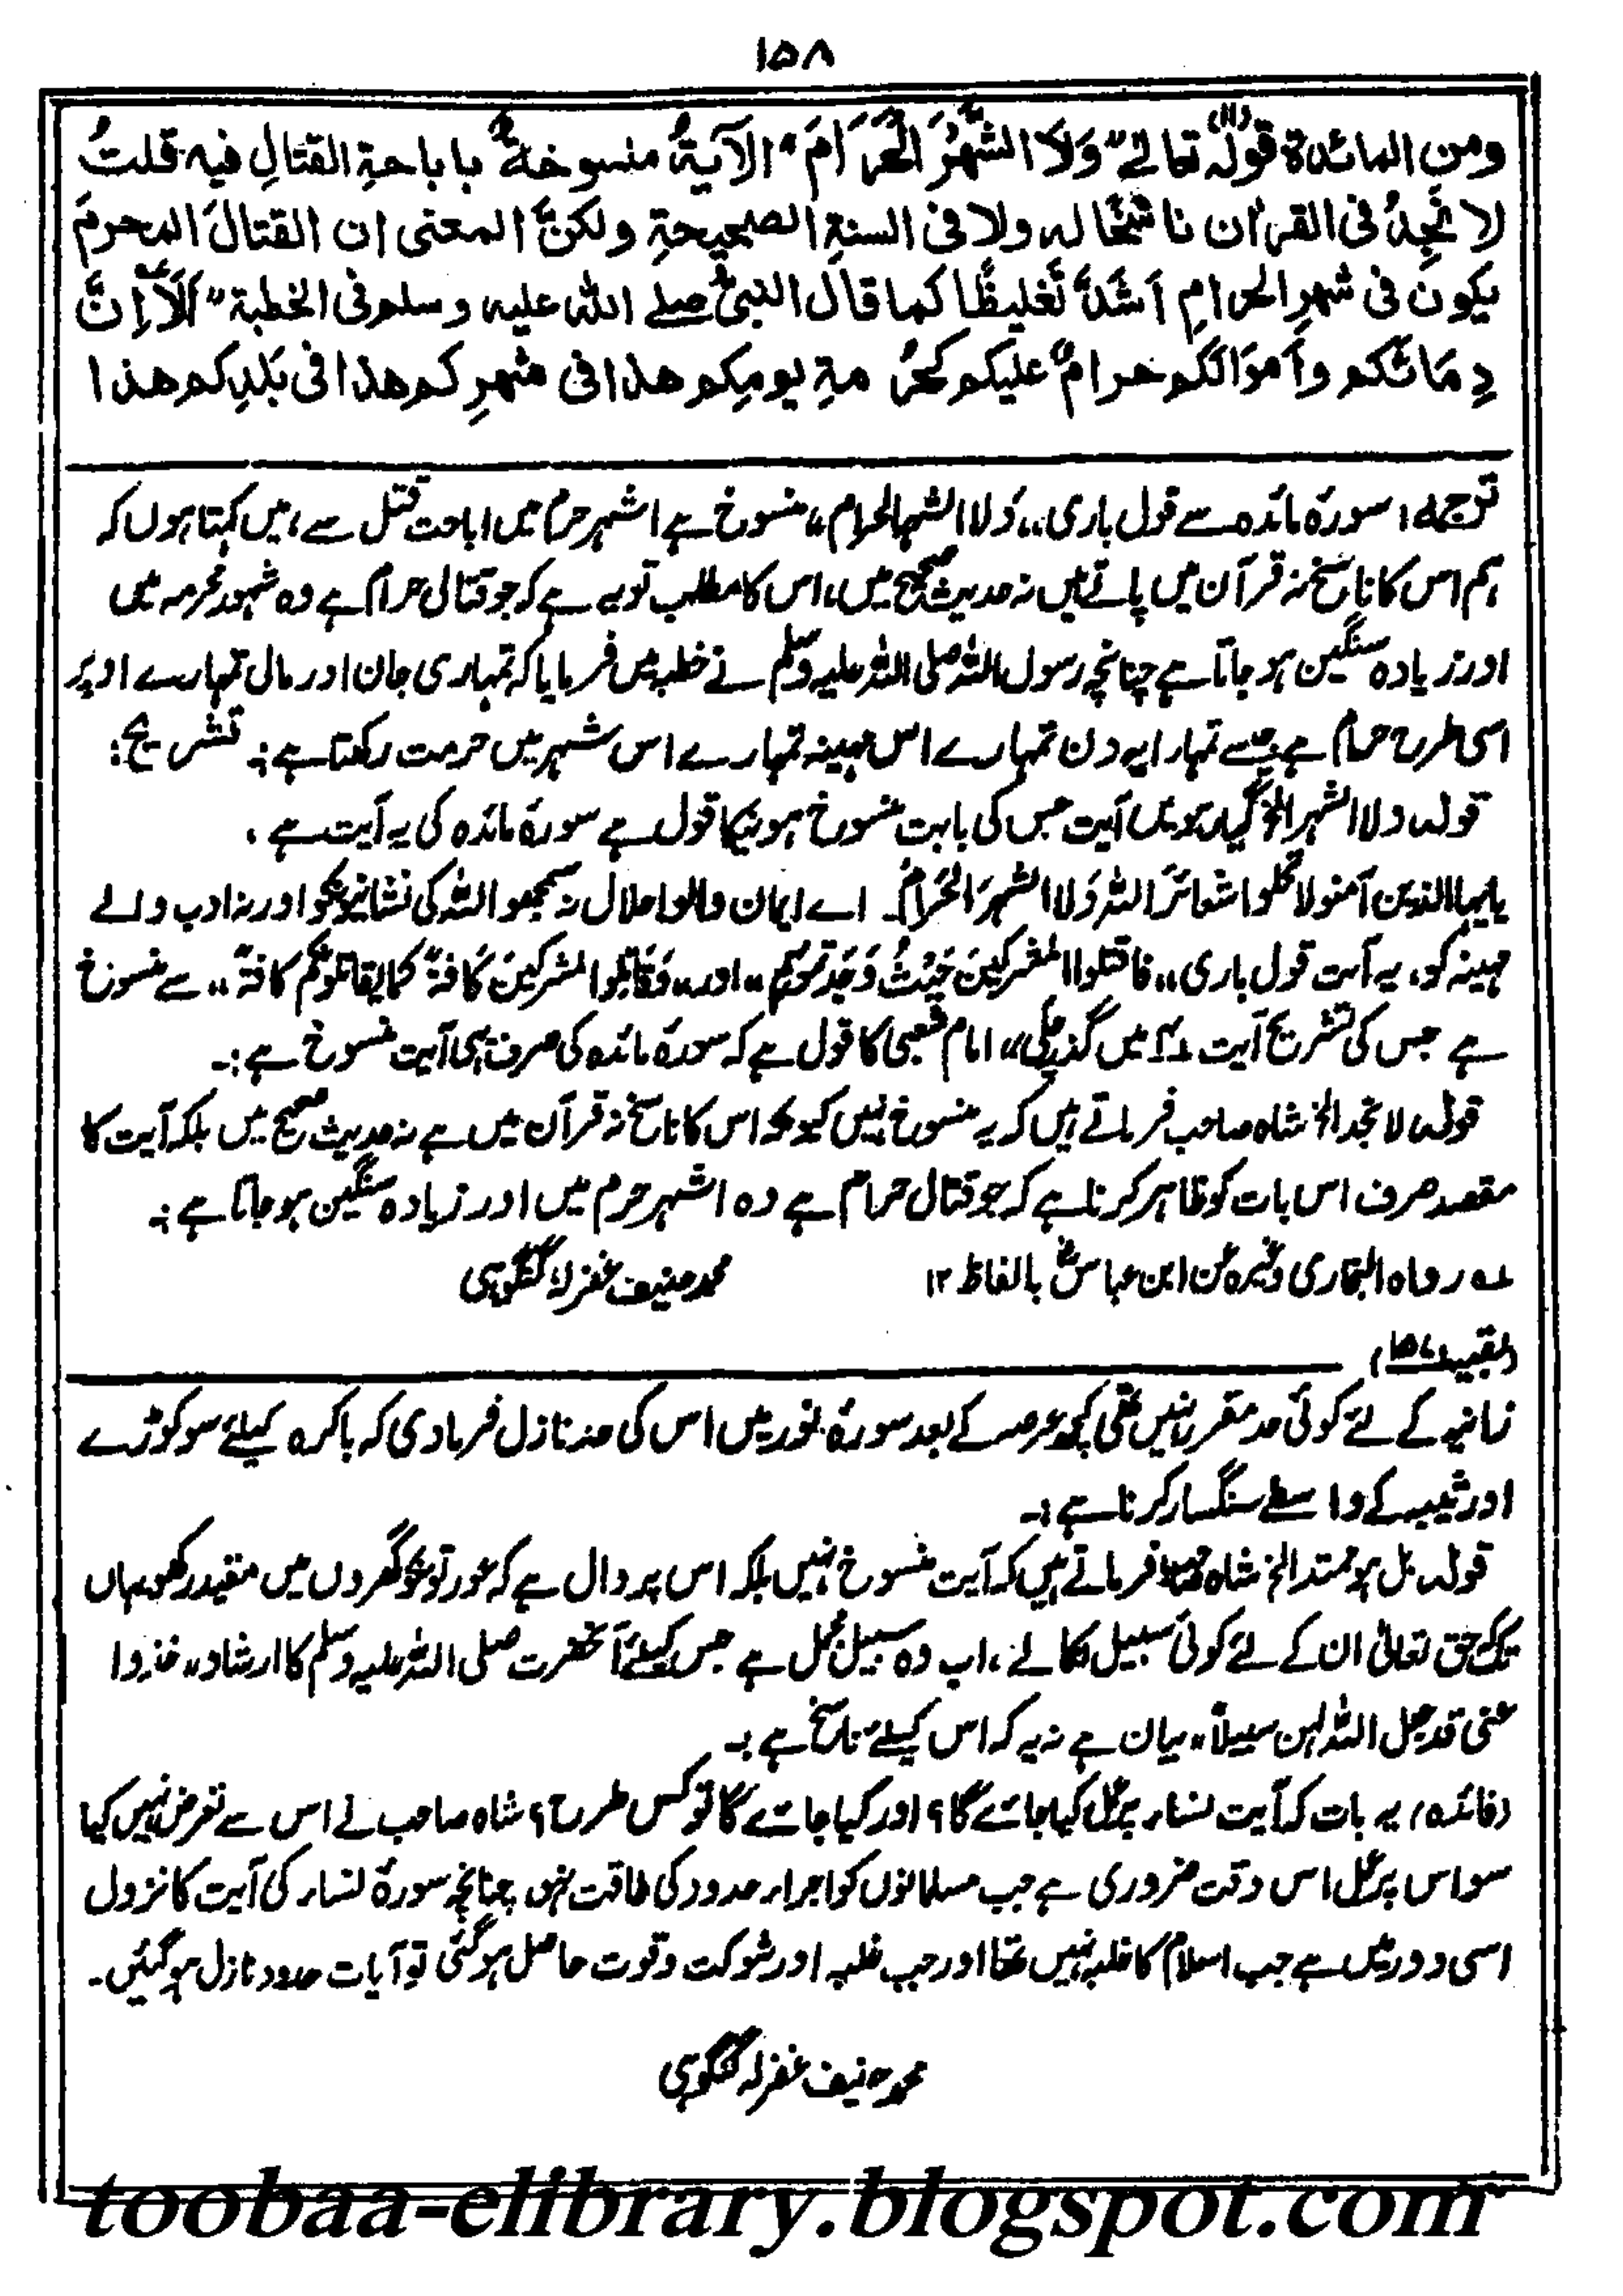 ۱۵۸
ومن المائدة قولہ تعالے "وَلَا الشَّهْرَ الْحَرَامَ" الآیۃُ منسوخۃٌ باباحۃِ القتالِ فیہ قلتُ
(۱۱)
لا نَجِدُ فی القرآن ناسخًا لہ ولا فی السنۃِ الصحیحۃِ ولکنَّ المعنی ان القتالَ المحرمَ
یکون فی شہرِ الحرامِ اَشَدَّ تَغلیظًا کما قال النبیُّ صلے اللہ علیہ وسلم فی الخطبۃ "اَلَا اِنَّ
دِمَائَکم واَموَالَکُم حرامٌ علیکم کَحُرمۃِ یومِکم ھذا فی شہرِکم ھذا فی بَلَدِکم ھذا
ترجمہ: سورۂ مائدہ سے قول باری ،،وَلا الشہر الحرام،، منسوخ ہے اشہر حرم میں اباحت قتل سے، میں کہتا ہوں کہ
ہم اس کا ناسخ نہ قرآن میں پاتے ہیں نہ حدیث صحیح میں، اس کا مطلب تو یہ ہے کہ جو قتال حرام ہے وہ شہور محرمہ میں
اور زیادہ سنگین ہو جاتا ہے چنانچہ رسول اللہ صلی اللہ علیہ وسلم نے خطبہ میں فرمایا کہ تمہاری جان اور مال تمہارے اوپر
اسی طرح حرام ہے جیسے تمہارا یہ دن تمہارے اس مہینہ تمہارے اس شہر میں حرمت رکھتا ہے:۔ تشریح:
قولہ ولا الشہر الخ گیارہویں آیت جس کی بابت منسوخ ہونیکا قول ہے سورۂ مائدہ کی یہ آیت ہے ،
یایہا الذین آمنو لا تحلوا شعائرَ اللہ وَلا الشہرَ الحَرامَ۔ اے ایمان والو! حلال نہ سمجھو اللہ کی نشانیونکو اور نہ ادب والے
مہینہ کو، یہ آیت قول باری ،،فاقتلوا المشرکینَ حَیثُ وَجَدتموہم،، اور ،،وَقَاتِلوا المشرکینَ کَافۃً کما یقاتلونکم کافۃً،، سے منسوخ
ہے جس کی تشریح آیت میں گذر چکی،، امام شعبی کا قول ہے کہ سورۂ مائدہ کی صرف یہی آیت منسوخ ہے:۔
قولہ لا نجد الخ شاہ صاحب فرماتے ہیں کہ یہ منسوخ نہیں کیونکہ اس کا ناسخ نہ قرآن میں ہے نہ حدیث صحیح میں بلکہ آیت کا
مقصد صرف اس بات کو ظاہر کرنا ہے کہ جو قتال حرام ہے وہ اشہر حرم میں اور زیادہ سنگین ہو جاتا ہے :۔
؎ رواہ البخاری وغیرہ عن ابن عباسؓ بالفاظ ۱۲ محمد حنیف غفرلہ گنگوہی
(بقیہ ۱۵۷)
زانیہ کے لئے کوئی حد مقرر نہیں تھی کچھ عرصہ کے بعد سورۂ نور میں اس کی حد نازل فرما دی کہ باکرہ کیلئے سو کوڑے
اور ثیبہ کے واسطے سنگسار کرنا ہے:۔
قولہ بل ہو ممتد الخ شاہ صاحب فرماتے ہیں کہ آیت منسوخ نہیں بلکہ اس پر دال ہے کہ عورتونکو گھروں میں مقید رکھو یہاں
تک حق تعالیٰ ان کے لئے کوئی سبیل نکالے، اب وہ سبیل مجمل ہے جس کیلئے آنحضرت صلی اللہ علیہ وسلم کا ارشاد ،،خذوا
عنی قد جعل اللہ لہن سبیلاً،، بیان ہے نہ یہ کہ اس کیلئے ناسخ ہے :۔
(فائدہ) یہ بات کہ آیت نساء پر عمل کیا جائے گا؟ اور کیا جائے گا تو کس طرح؟ شاہ صاحب نے اس سے تعرض نہیں کیا
سو اس پر عمل اس وقت ضروری ہے جب مسلمانوں کو اجراء حدود کی طاقت نہو چنانچہ سورۂ نساء کی آیت کا نزول
اسی دور میں ہے جب اسلام کا غلبہ نہیں تھا اور جب غلبہ اور شوکت وقوت حاصل ہو گئی تو آیات حدود نازل ہو گئیں۔
محمد حنیف غفرلہ گنگوہی
toobaa-elibrary.blogspot.com